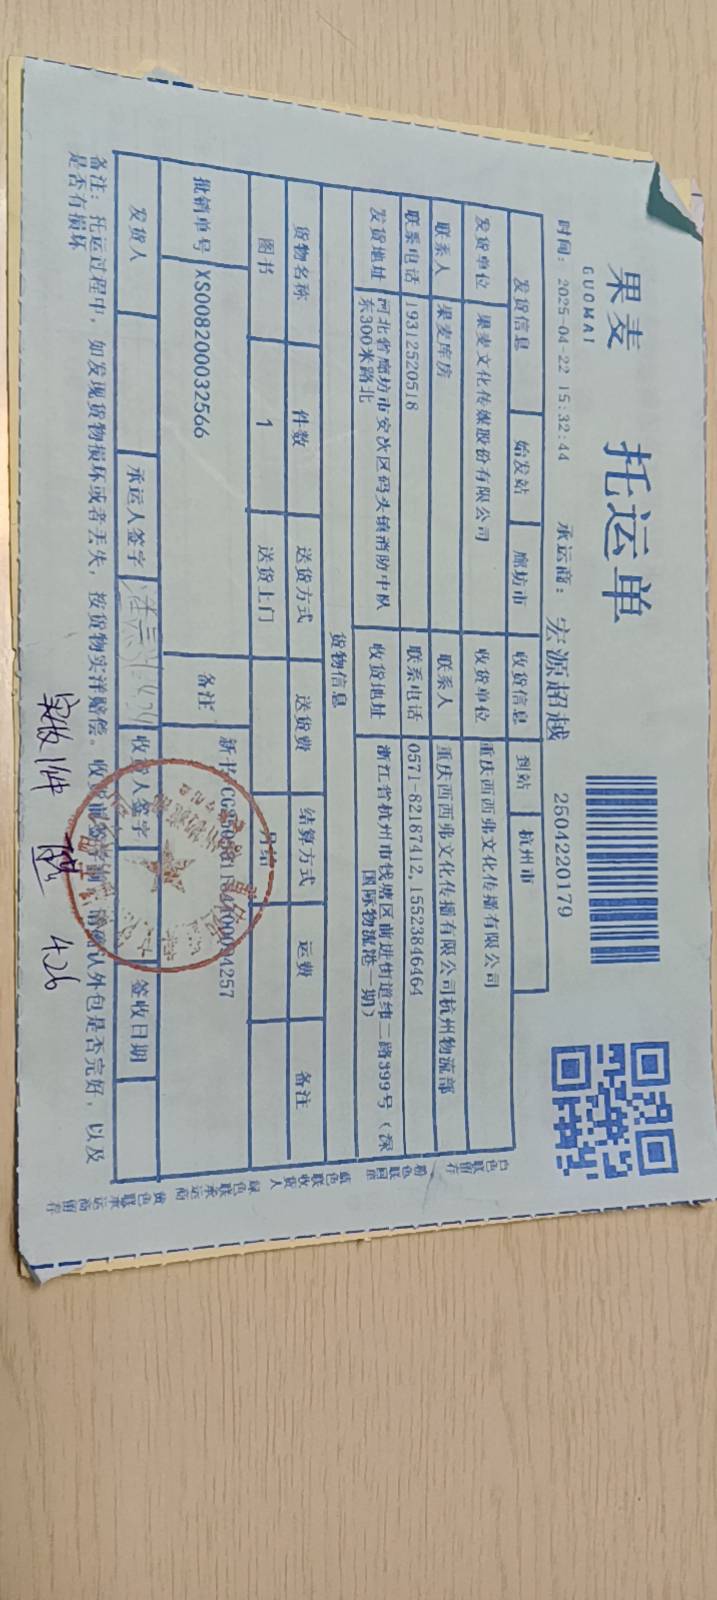 果麦
GUOMAI
托运单
时间: 2025-04-22 15:32:44 承运商: 宏源超越 2504220179
发货信息 始发站 廊坊市 收货信息 到站 杭州市
发货单位 果麦文化传媒股份有限公司 收货单位 重庆西西弗文化传播有限公司
联系人 果麦库房 联系人 重庆西西弗文化传播有限公司杭州物流部
联系电话 19312520518 联系电话 0571-82187412,15523846464
发货地址 河北省廊坊市安次区码头镇消防中队
东300米路北
收货地址 浙江省杭州市钱塘区前进街道纬二路399号(深
国际物流港一期)
货物信息
货物名称 件数 送货方式 送货费 结算方式 运费 备注
图书 1 送货上门 月结
批销单号 XS008200032566 备注 新书
发货人 承运人签字 收货人签字 签收日期
备注: 托运过程中, 如发现货物损坏或者丢失, 按货物实洋赔偿。 收货前签字前, 请确认外包是否完好, 以及
是否有损坏
实收1件 426
白色联留存
粉色联回单
蓝色联收货人
绿色联承运商
黄色联承运商留存